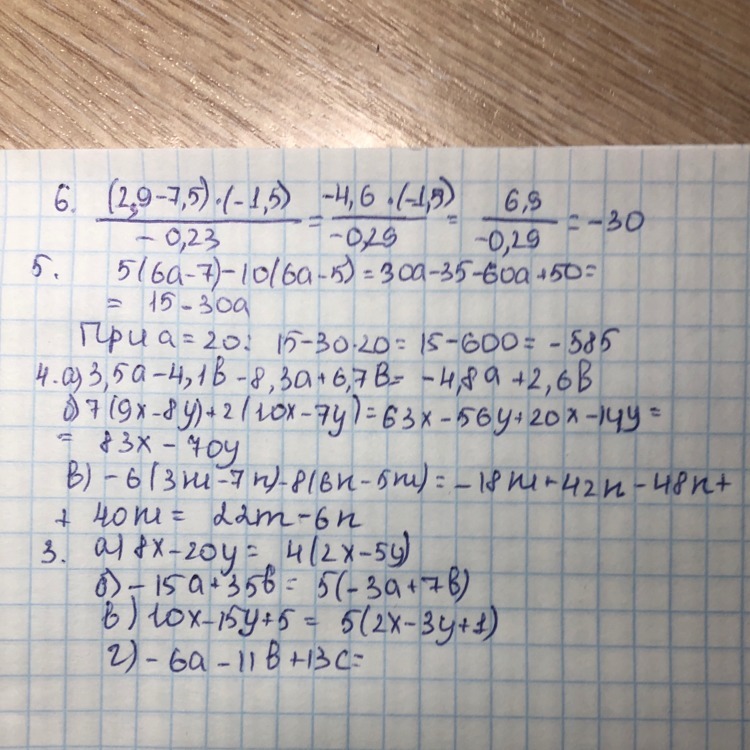 6. (2,9-7,5)·(-1,5)/-0,23 = -4,6·(-1,5)/-0,29 = 6,9/-0,29 = -30
5. 5(6a-7)-10(6a-5)=30a-35-60a+50=
= 15-30a
При a=20: 15-30·20=15-600=-585
4. а) 3,5a-4,1в-8,3a+6,7в= -4,8a+2,6в
б) 7(9x-8y)+2(10x-7y)=63x-56y+20x-14y=
= 83x-70y
в) -6(3m-7n)-8(6n-5m)=-18m+42n-48n+
+40m= 22m-6n
3. а) 8x-20y= 4(2x-5y)
б) -15a+35в= 5(-3a+7в)
в) 10x-15y+5= 5(2x-3y+1)
г) -6a-11в+13c=